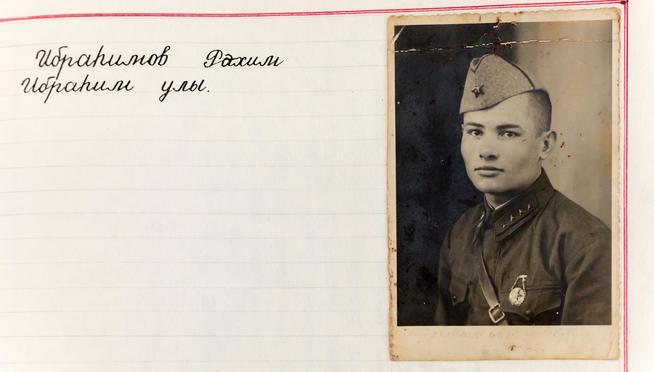 Ибраһимов Рахим
Ибраһим улы.